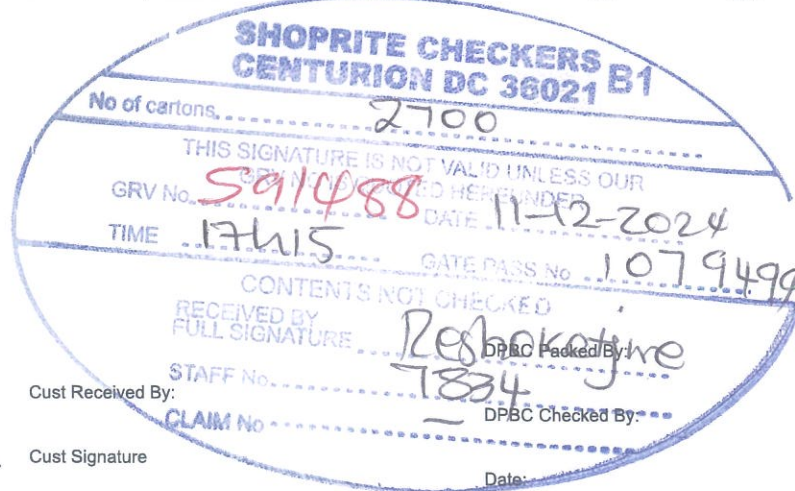 SHOPRITE CHECKERS
CENTURION DC 36021 B1
No of cartons 2700
THIS SIGNATURE IS NOT VALID UNLESS OUR
GRV No IS QUOTED HEREUNDER
GRV No. 591488 DATE 11-12-2024
TIME 17h15 GATE PASS No 1079499
CONTENTS NOT CHECKED
RECEIVED BY
FULL SIGNATURE DPBC Packed By:
STAFF No. 7834
Cust Received By:
CLAIM No — DPBC Checked By:
Cust Signature
Date: